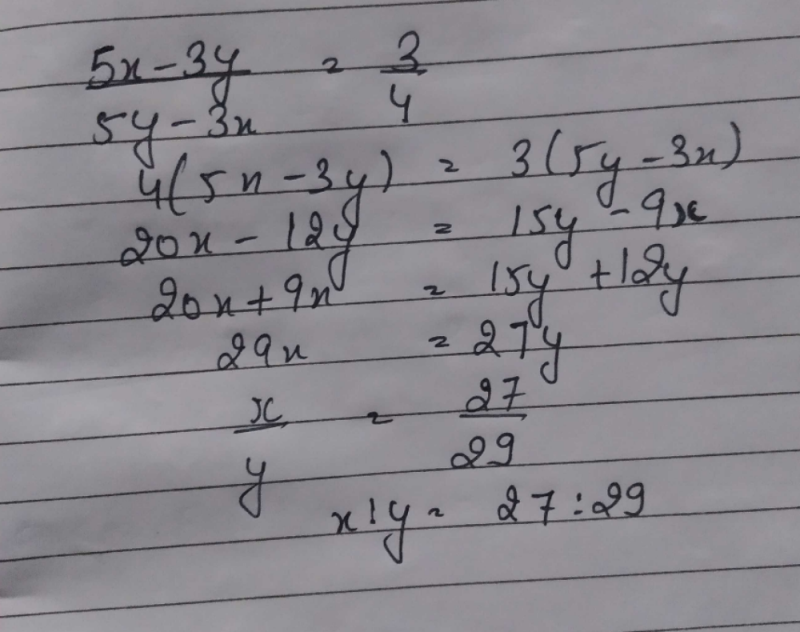 5x-3y = 3
5y-3x 4
4(5x-3y) = 3(5y-3x)
20x-12y = 15y-9x
20x+9x = 15y+12y
29x = 27y
x = 27
y 29
x:y = 27:29